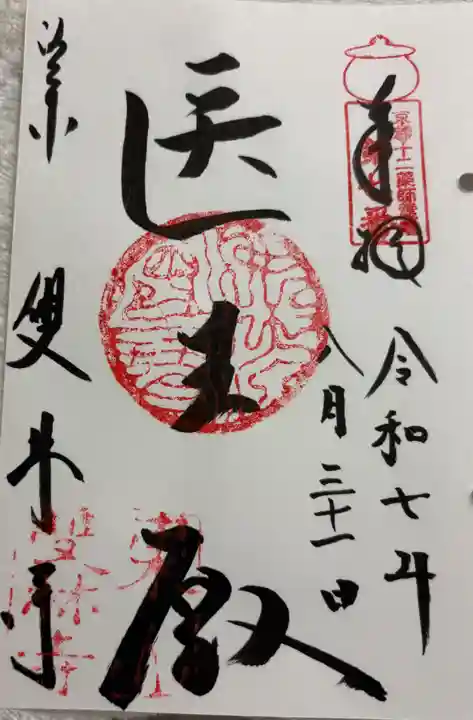 奉拝
京都十二薬師霊場
令和七年
八月三十一日
医王殿
雙林寺